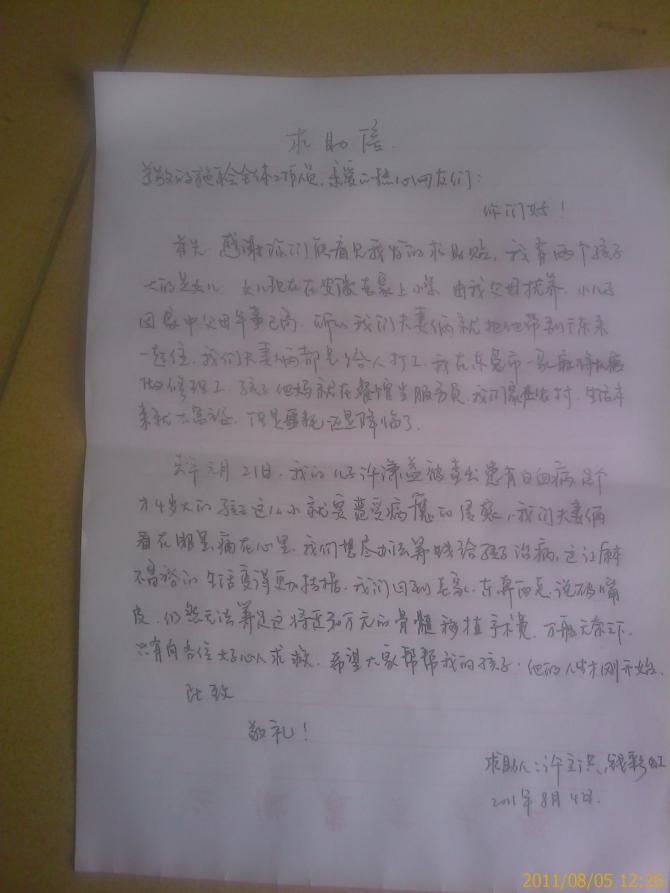 求助信
尊敬的施乐会全体工作人员,亲爱的热心网友们:
你们好!
首先,感谢你们能看见我发的求助贴,我有两个孩子
大的是女儿,女儿现在在安徽老家上小学,由我父母抚养,小儿子
因家中父母年事已高,所以我们夫妻俩就把他带到广东来
一起住,我们夫妻俩都是给人打工,我在东莞市一家
做修理工,孩子他妈就在餐馆当服务员,我们家在农村,生活本
来就不富裕,但是噩耗还是降临了。
去年元月21日,我的儿子许满益被查出患有白血病,这个
才4岁大的孩子这么小就要遭受病魔的侵袭,我们夫妻俩
看在眼里痛在心里,我们想尽办法筹钱给孩子治病,这让原本
不富裕的生活变得更加拮据,我们回到老家,东奔西走,说破嘴
皮,仍然无法筹足这将近30万元的骨髓移植手术费,万般无奈之下
只有向各位好心人求救,希望大家帮帮我的孩子,他的人生才刚开始。
此致
敬礼!
求助人:许立洪、钱彩虹
2011年8月4日.
2011/08/05 12:26